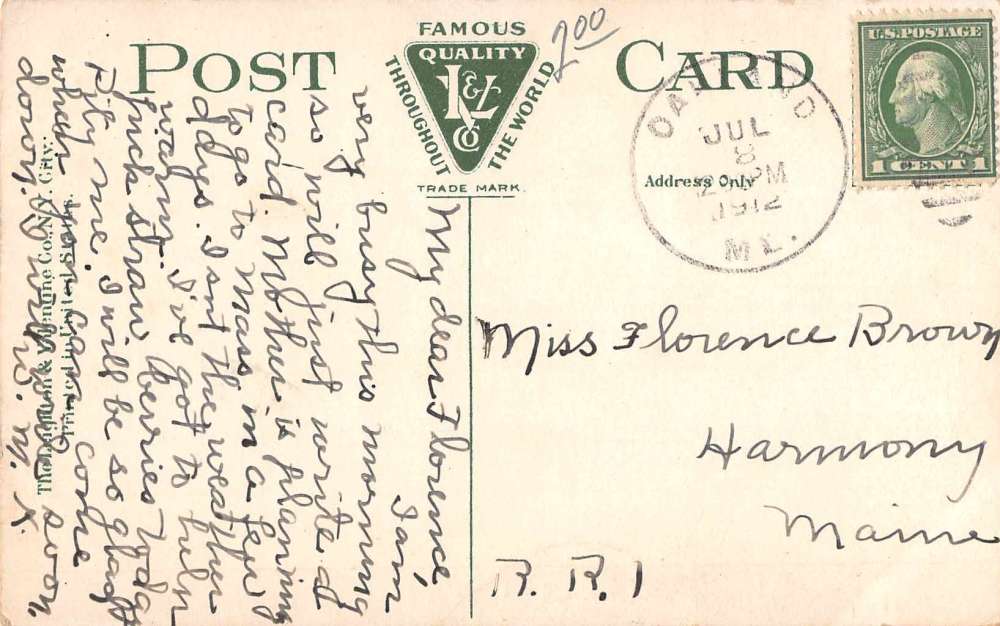 FAMOUS
QUALITY
THROUGHOUT
THE WORLD
L & Z
CO
TRADE MARK.
POST CARD
2.00
U.S. POSTAGE
1 CENT 1
OAKLAND
JUL
8
2 PM
1912
ME.
Address Only
My dear Florence,
I am
very busy this morning
so will just write a
card. Mother is planing
to go to Mass in a few
days. Isnt the weather
warm. I've got to huln
finck straw berries today
Pity me. I will be so glad
when you can come
down. soon.
Miss Florence Brown
Harmony
Maine
R. R. 1
The & Valentine Co., N. Y. City.
Printed in United States.